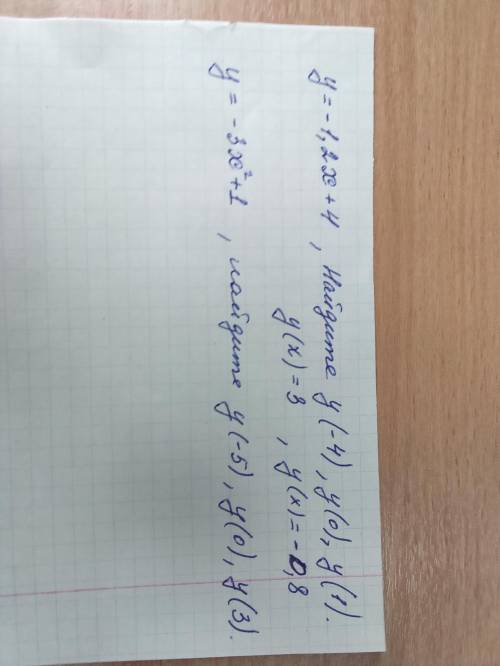 y = -1,2x+4 , Найдите y(-4), y(0), y(1).
y(x)=3 , y(x)=-0,8
y = -3x²+1 , найдите y(-5), y(0), y(3).